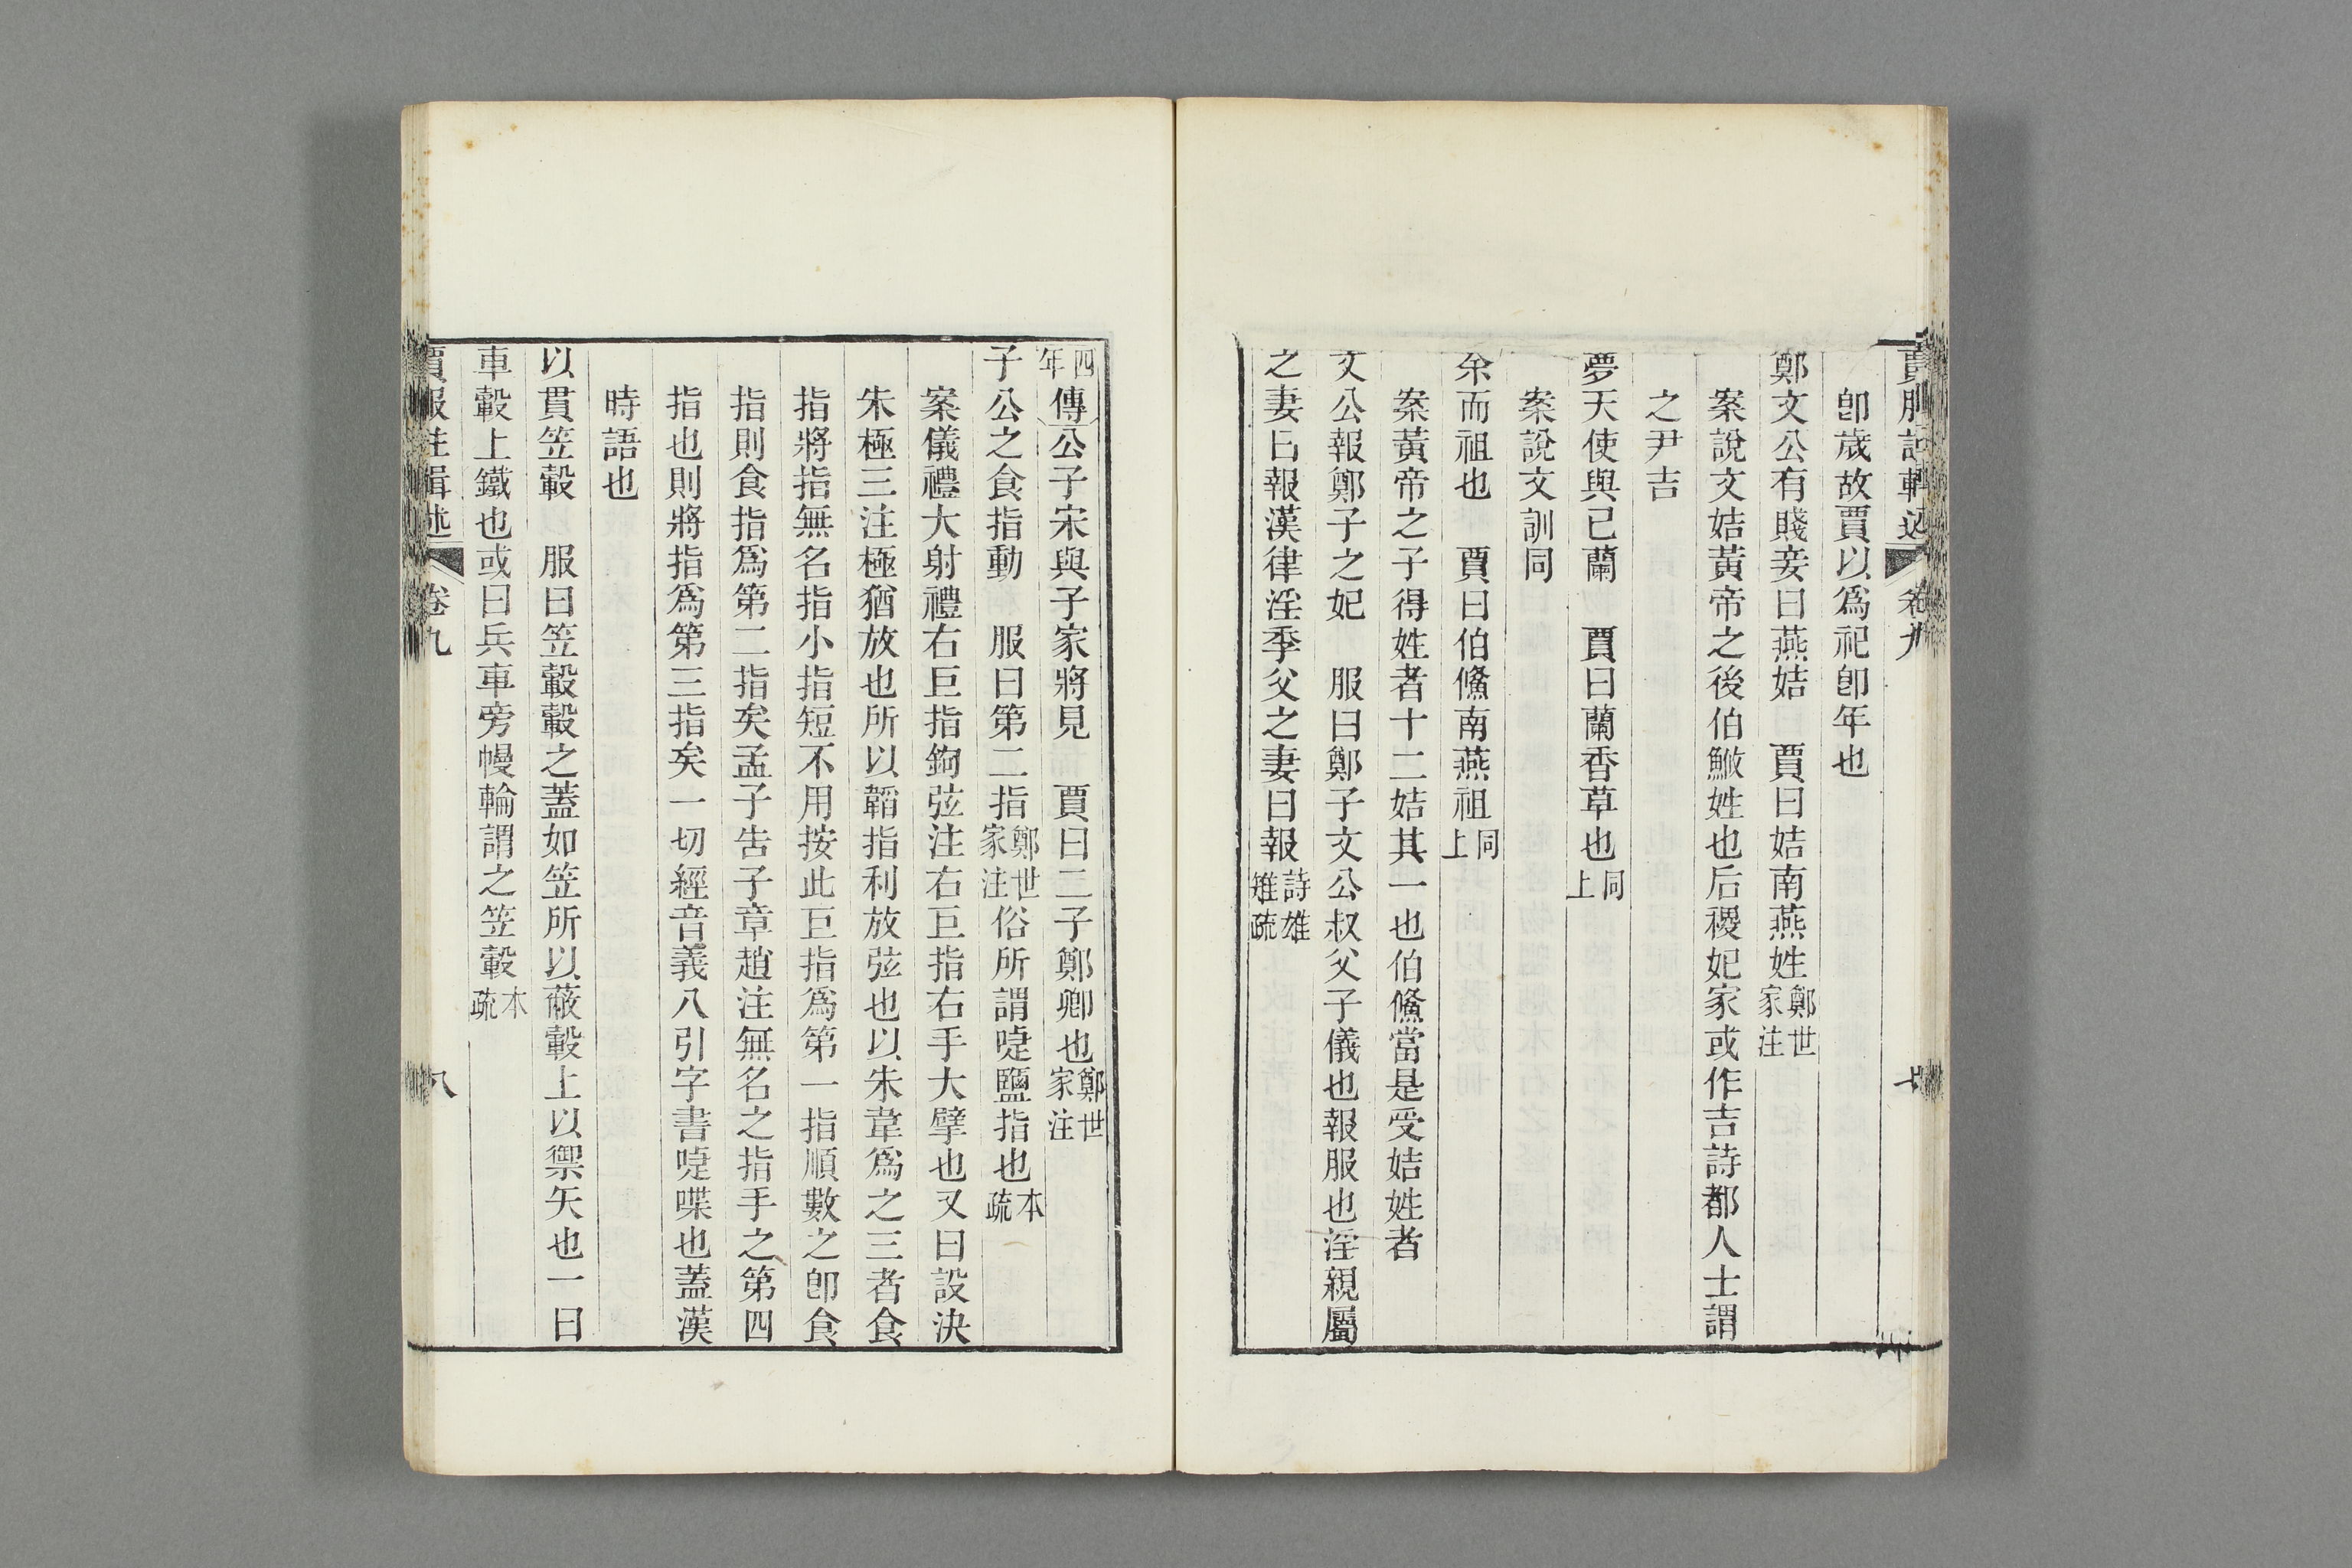 賈服註輯述 卷九 七
卽歲故賈以爲祀卽年也
鄭文公有賤妾曰燕姞　賈曰姞南燕姓鄭世家注
案說文姞黃帝之後伯鯈姓也后稷妃家或作吉詩都人士謂
之尹吉
夢天使與己蘭　賈曰蘭香草也同上
案說文訓同
余而祖也　賈曰伯鯈南燕祖同上
案黃帝之子得姓者十二姞其一也伯鯈當是受姞姓者
文公報鄭子之妃　服曰鄭子文公叔父子儀也報服也淫親屬
之妻曰報漢律淫季父之妻曰報詩雄雉疏
四年傳公子宋與子家將見　賈曰二子鄭卿也鄭世家注
子公之食指動　服曰第二指鄭世家注俗所謂嗁鹽指也本疏
案儀禮大射禮右巨指鉤弦注右巨指右手大擘也又曰設決
朱極三注極猶放也所以韜指利放弦也以朱韋爲之三者食
指將指無名指小指短不用按此巨指爲第一指順數之卽食
指則食指爲第二指矣孟子吿子章趙注無名之指手之第四
指也則將指爲第三指矣一切經音義八引字書啑喋也蓋漢
時語也
以貫笠轂　服曰笠轂轂之蓋如笠所以蔽轂上以禦矢也一曰
車轂上鐵也或曰兵車旁幔輪謂之笠轂本疏
賈服註輯述 卷九 八